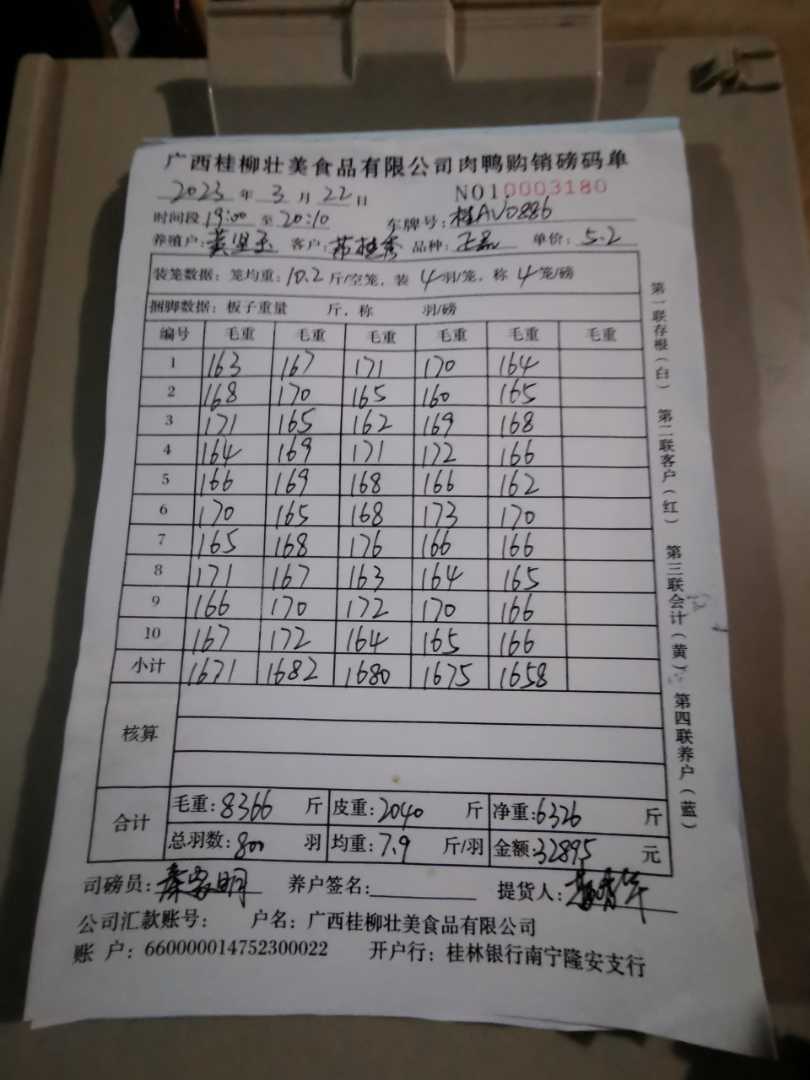 广西桂柳壮美食品有限公司肉鸭购销磅码单
2023 年 3 月 22 日 NO10003180
时间段 19:00 至 20:10 车牌号: 桂AV0886
养殖户: 客户: 品种: 单价: 5.2
装笼数据: 笼均重: 10.2 斤/空笼, 装 4 羽/笼, 称 4 笼/磅
捆脚数据: 板子重量 斤, 称 羽/磅
编号 毛重 毛重 毛重 毛重 毛重 毛重
1 163 167 171 170 164
2 168 170 165 160 165
3 171 165 162 169 168
4 164 169 171 172 166
5 166 169 168 166 162
6 170 165 168 173 170
7 165 168 176 166 166
8 171 167 163 164 165
9 166 170 172 170 166
10 167 172 164 165 166
小计 1671 1682 1680 1675 1658
核算
合计 毛重: 8366 斤 皮重: 2040 斤 净重: 6326 斤
总羽数: 800 羽 均重: 7.9 斤/羽 金额: 32895 元
司磅员: 养户签名: 提货人:
公司汇款账号: 户名: 广西桂柳壮美食品有限公司
账 户: 660000014752300022 开户行: 桂林银行南宁隆安支行
第一联存根(白) 第二联客户(红) 第三联会计(黄) 第四联养户(蓝)